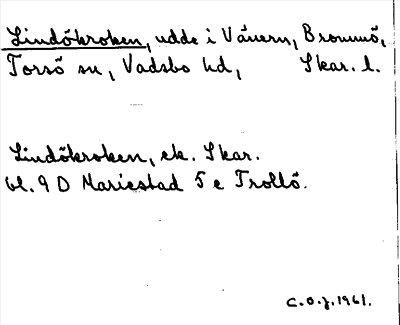 Lindökroken, udde i Vänern, Brommö,
Torsö sn, Vadsbo hd, Skar. l.
Lindökroken, ek. Skar.
bl. 9 D Mariestad 5 e Trollö.
C.O.J. 1961.